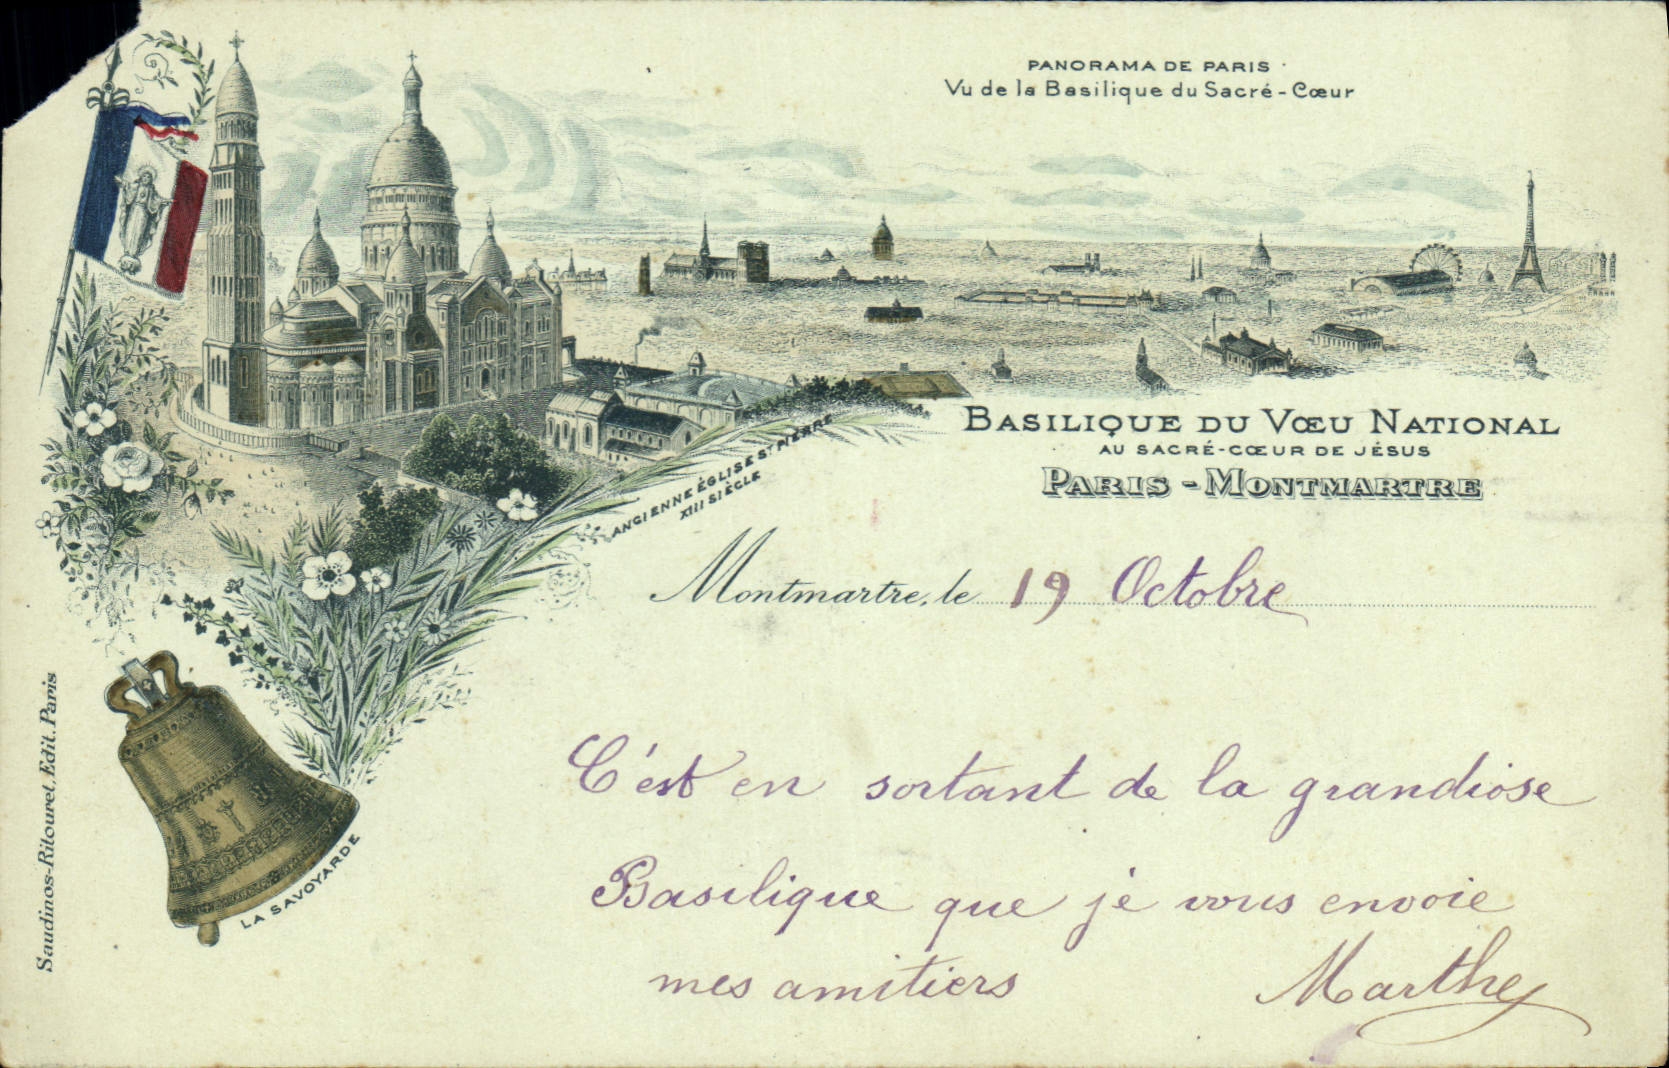 PANORAMA DE PARIS
Vu de la Basilique du Sacré-Cœur
BASILIQUE DU VŒU NATIONAL
AU SACRÉ-CŒUR DE JÉSUS
PARIS-MONTMARTRE
ANCIENNE ÉGLISE ST PIERRE
XIII SIÈCLE
Montmartre, le 19 Octobre
C'est en sortant de la grandiose
Basilique que je vous envoie
mes amitiers
Marthe
LA SAVOYARDE
Saudinos-Ritouret, Edit. Paris